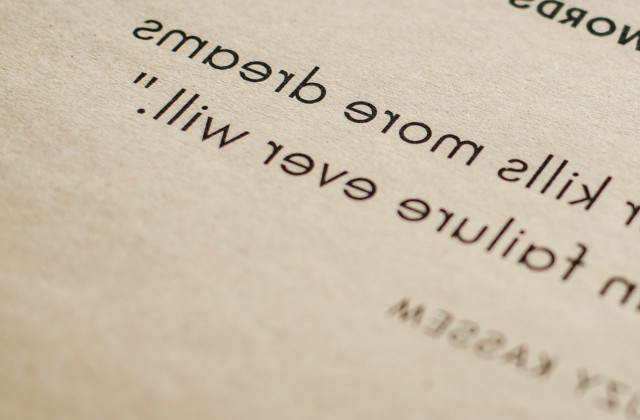 WORDS
kills more dreams
failure ever will."
KASSEM